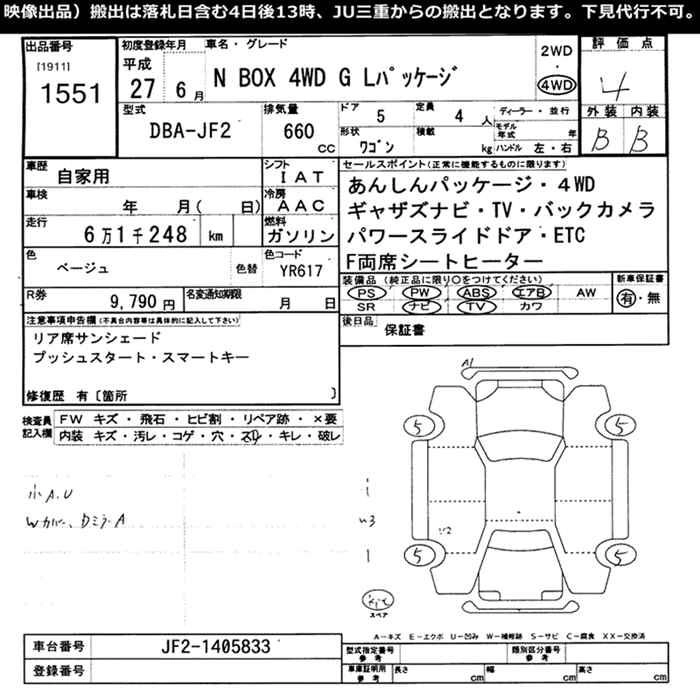 映像出品）搬出は落札日含む4日後13時、JU三重からの搬出となります。下見代行不可。
出品番号
[1911]
1551
初度登録年月
平成
27 6月
車名・グレード
N BOX 4WD G Lパッケージ
2WD
4WD
評価点
4
外装 内装
B B
型式
DBA-JF2
排気量
660
cc
ドア
5
定員
4
人
形状
ワゴン
積載
kg
ディーラー・並行
モデル年式
年
ハンドル 左・右
車歴
自家用
シフト
IAT
車検
年 月( 日)
冷房
AAC
走行
6万1千248 km
燃料
ガソリン
色
ベージュ
色替
色コード
YR617
R券
9,790円
名変通知期限
月 日
セールスポイント(正常に機能するものに限ります)
あんしんパッケージ・4WD
ギャザズナビ・TV・バックカメラ
パワースライドドア・ETC
F両席シートヒーター
装備品(純正品に限り○をつけてください)
PS PW ABS エアB AW
SR ナビ TV カワ
新車保証書
有・無
後日品
保証書
注意事項申告欄(不具合内容等は具体的に記入して下さい)
リア席サンシェード
プッシュスタート・スマートキー
修復歴 有〔箇所 〕
検査員
記入欄
FW キズ・飛石・ヒビ割・リペア跡・×要
内装 キズ・汚れ・コゲ・穴・スレ・キレ・破レ
小A.U
Wカバー、DミラーA
A1
5 5
U2
5 5
スペア
A－キズ E－エクボ U－凹み W－補修跡 S－サビ C－腐食 XX－交換済
車台番号
JF2-1405833
登録番号
型式指定番号
参考
類別区分番号
参考
車庫証明用
参考
長さ
cm
幅
cm
高さ
cm